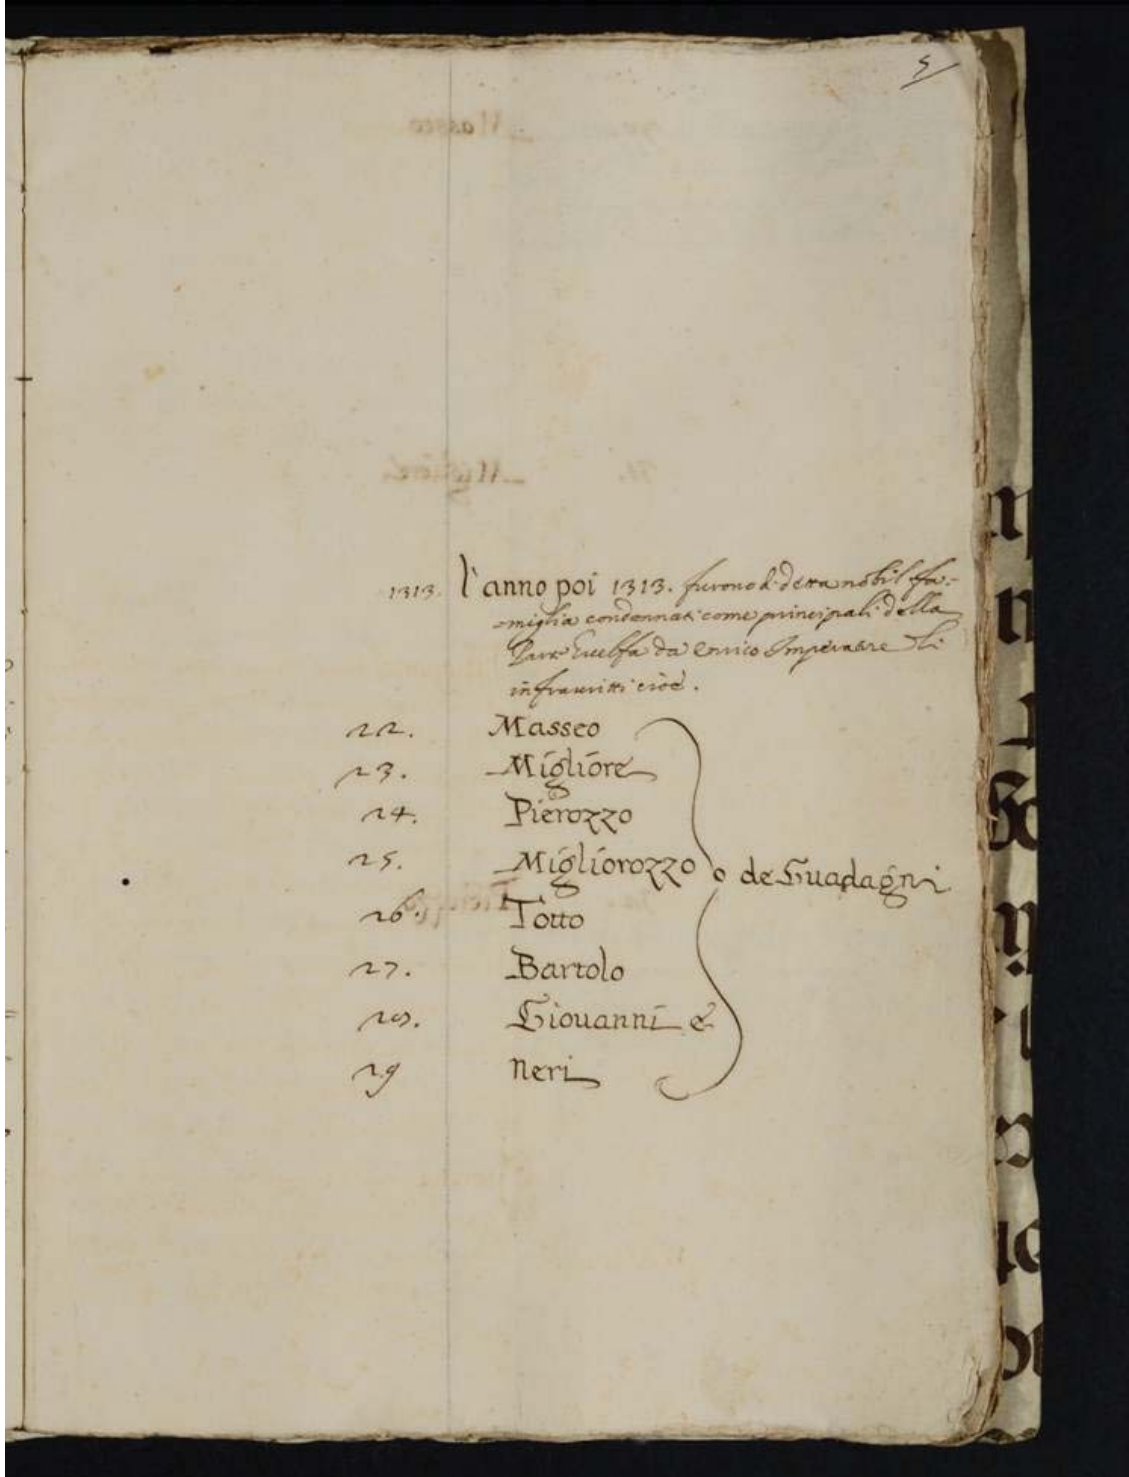 5
1313. l'anno poi 1313. furono di detta nobil fa=
=miglia condannati come principali della
Parte Guelfa da Enrico Imperatore li
infrascritti cioè.
22. Masseo
23. Migliore
24. Pierozzo
25. Migliorozzo de Guadagni
26. Totto
27. Bartolo
28. Giouanni e
29 Neri